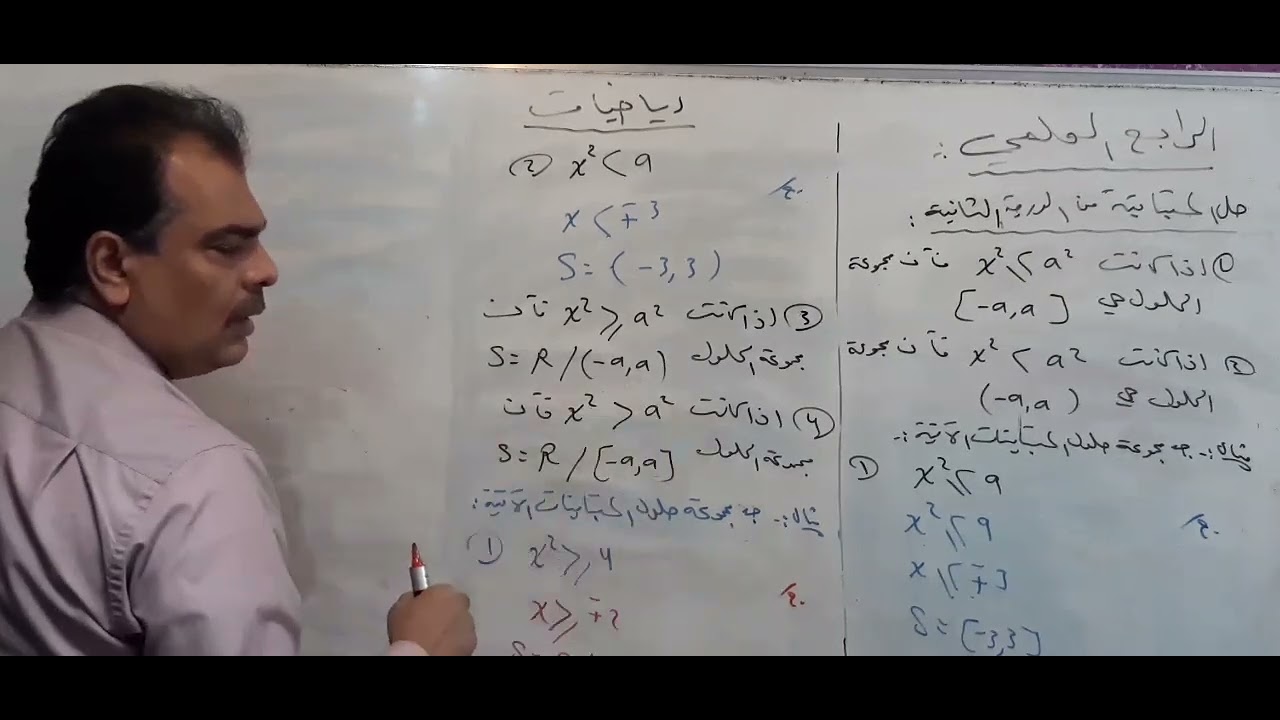 رياضيات
الرابع العلمي :.
حل المتباينة من الدرجة الثانية :
① اذا كانت x² ≤ a² فأن مجموعة
الحلول هي [-a, a]
② اذا كانت x² < a² فأن مجموعة
الحلول هي (-a, a)
مثال :- جد مجموعة حلول المتباينات الآتية :-
① x² ≤ 9
x² ≤ 9 ج.
x ≤ ∓3
S = [-3, 3]
② x² < 9
ج.
x < ∓3
S = (-3, 3)
③ اذا كانت x² ≥ a² فأن
مجموعة الحلول S = R / (-a, a)
④ اذا كانت x² > a² فأن
مجموعة الحلول S = R / [-a, a]
مثال :- جد مجموعة حلول المتباينات الآتية :
① x² ≥ 4
ج.
x ≥ ∓2